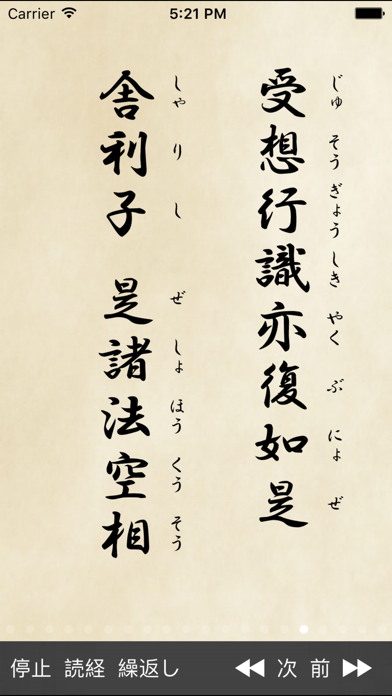 Carrier 5:21 PM
受想行識亦復如是
じゅ そう ぎょう しき やく ぶ にょ ぜ
舎利子 是諸法空相
しゃ り し ぜ しょ ほう くう そう
停止 読経 繰返し 次 前